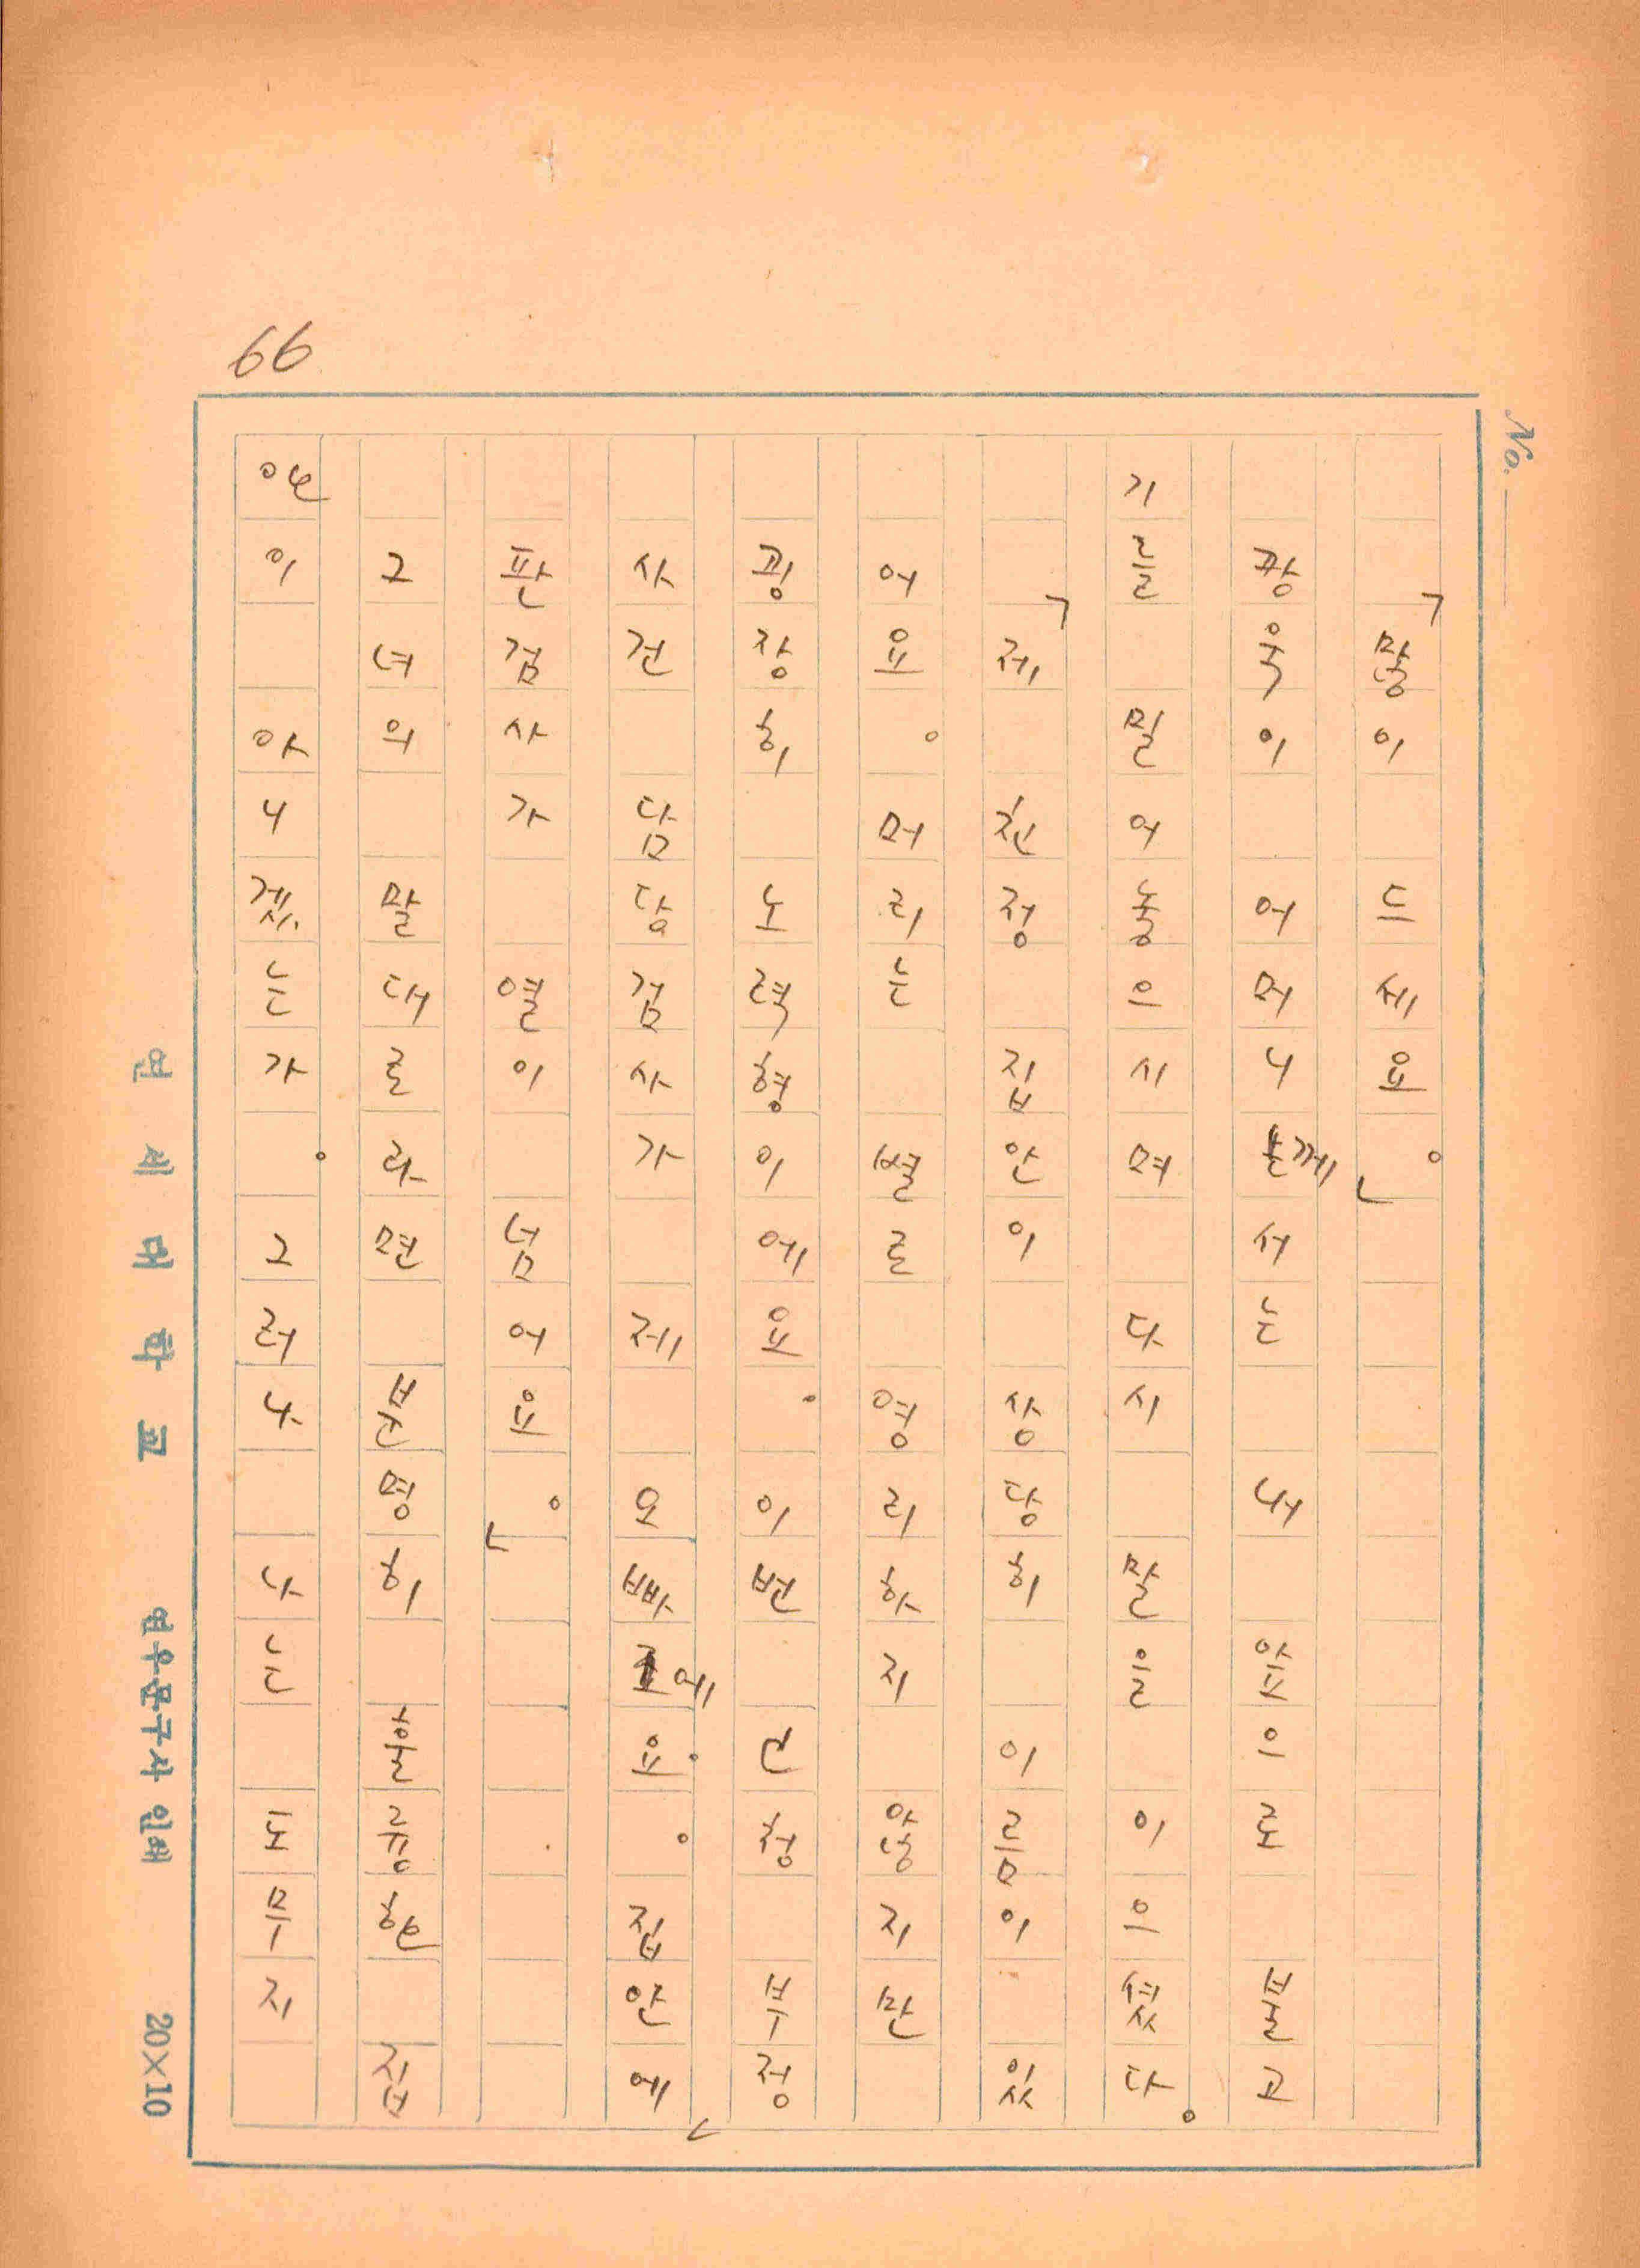 66
No.
「많이 드세요。」
광욱이 어머니께서는 내 앞으로 불고
기를 밀어 놓으시며 다시 말을 이으셨다。
「제 친정 집안이 상당히 이름이 있
어요。머리는 별로 영리하지 않지만
굉장히 노력형이에요. 이번 ㄷ청 부정
사건 담당검사가 제 오빠에요。집안에
판검사가 열이 넘어요。」
그녀의 말대로라면 분명히 훌륭한 집
안이 아니겠는가。그러나 나는 도무지
연세대학교 연우문구사 인쇄 20×10